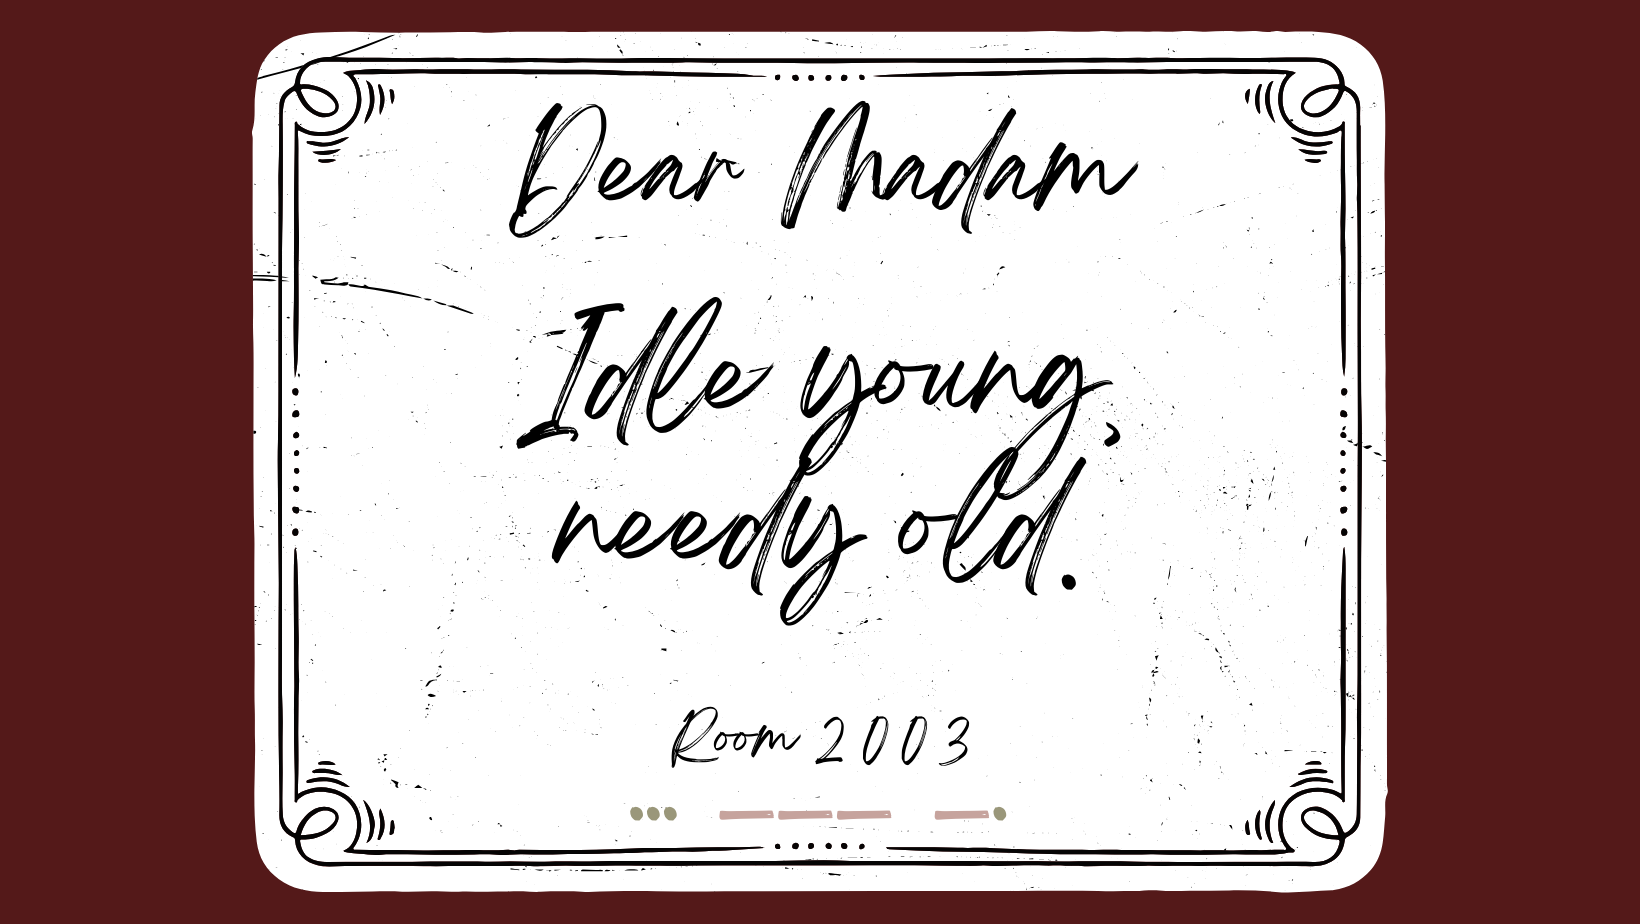 Dear Madam
Idle young,
needy old.
Room 2003